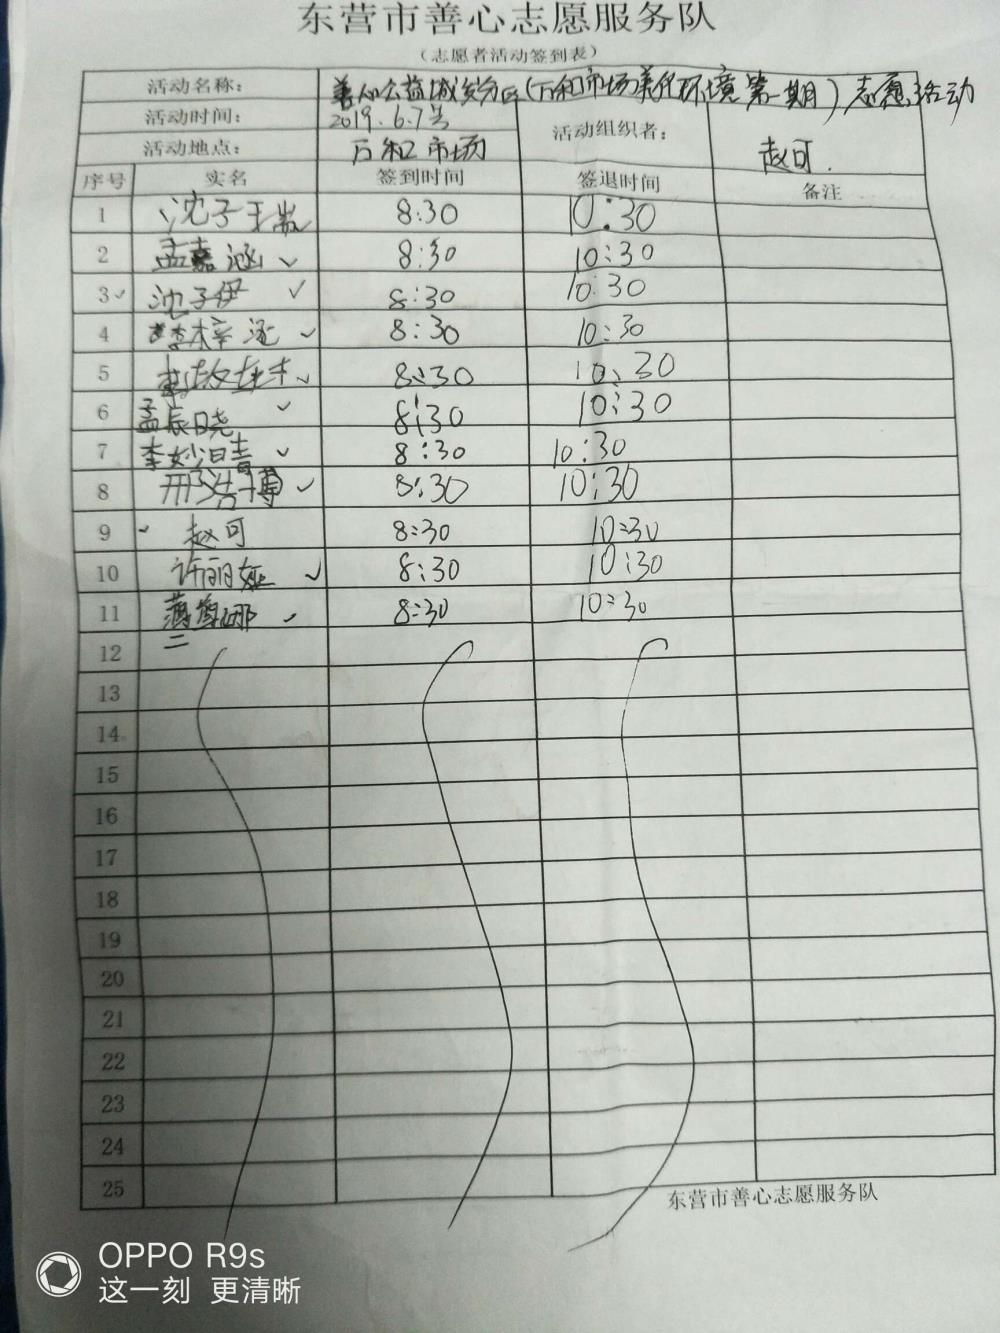 东营市善心志愿服务队
（志愿者活动签到表）
活动名称： （万和市场美化环境第一期）志愿活动
活动时间： 2019.6.7号 活动组织者： 赵可.
活动地点： 万和市场
序号 实名 签到时间 签退时间 备注
1 沈子 8:30 10:30
2 孟嘉涵 ✓ 8:30 10:30
3 ✓ 沈子伊 ✓ 8:30 10:30
4 ✓ 8:30 10:30
5 ✓ 8:30 10:30
6 孟辰晓 ✓ 8:30 10:30
7 李妙清 ✓ 8:30 10:30
8 邢浩博 ✓ 8:30 10:30
9 ✓ 赵可 8:30 10:30
10 许丽娅 ✓ 8:30 10:30
11 薄 娜 ✓ 8:30 10:30
12
13
14
15
16
17
18
19
20
21
22
23
24
25
东营市善心志愿服务队
OPPO R9s
这一刻 更清晰